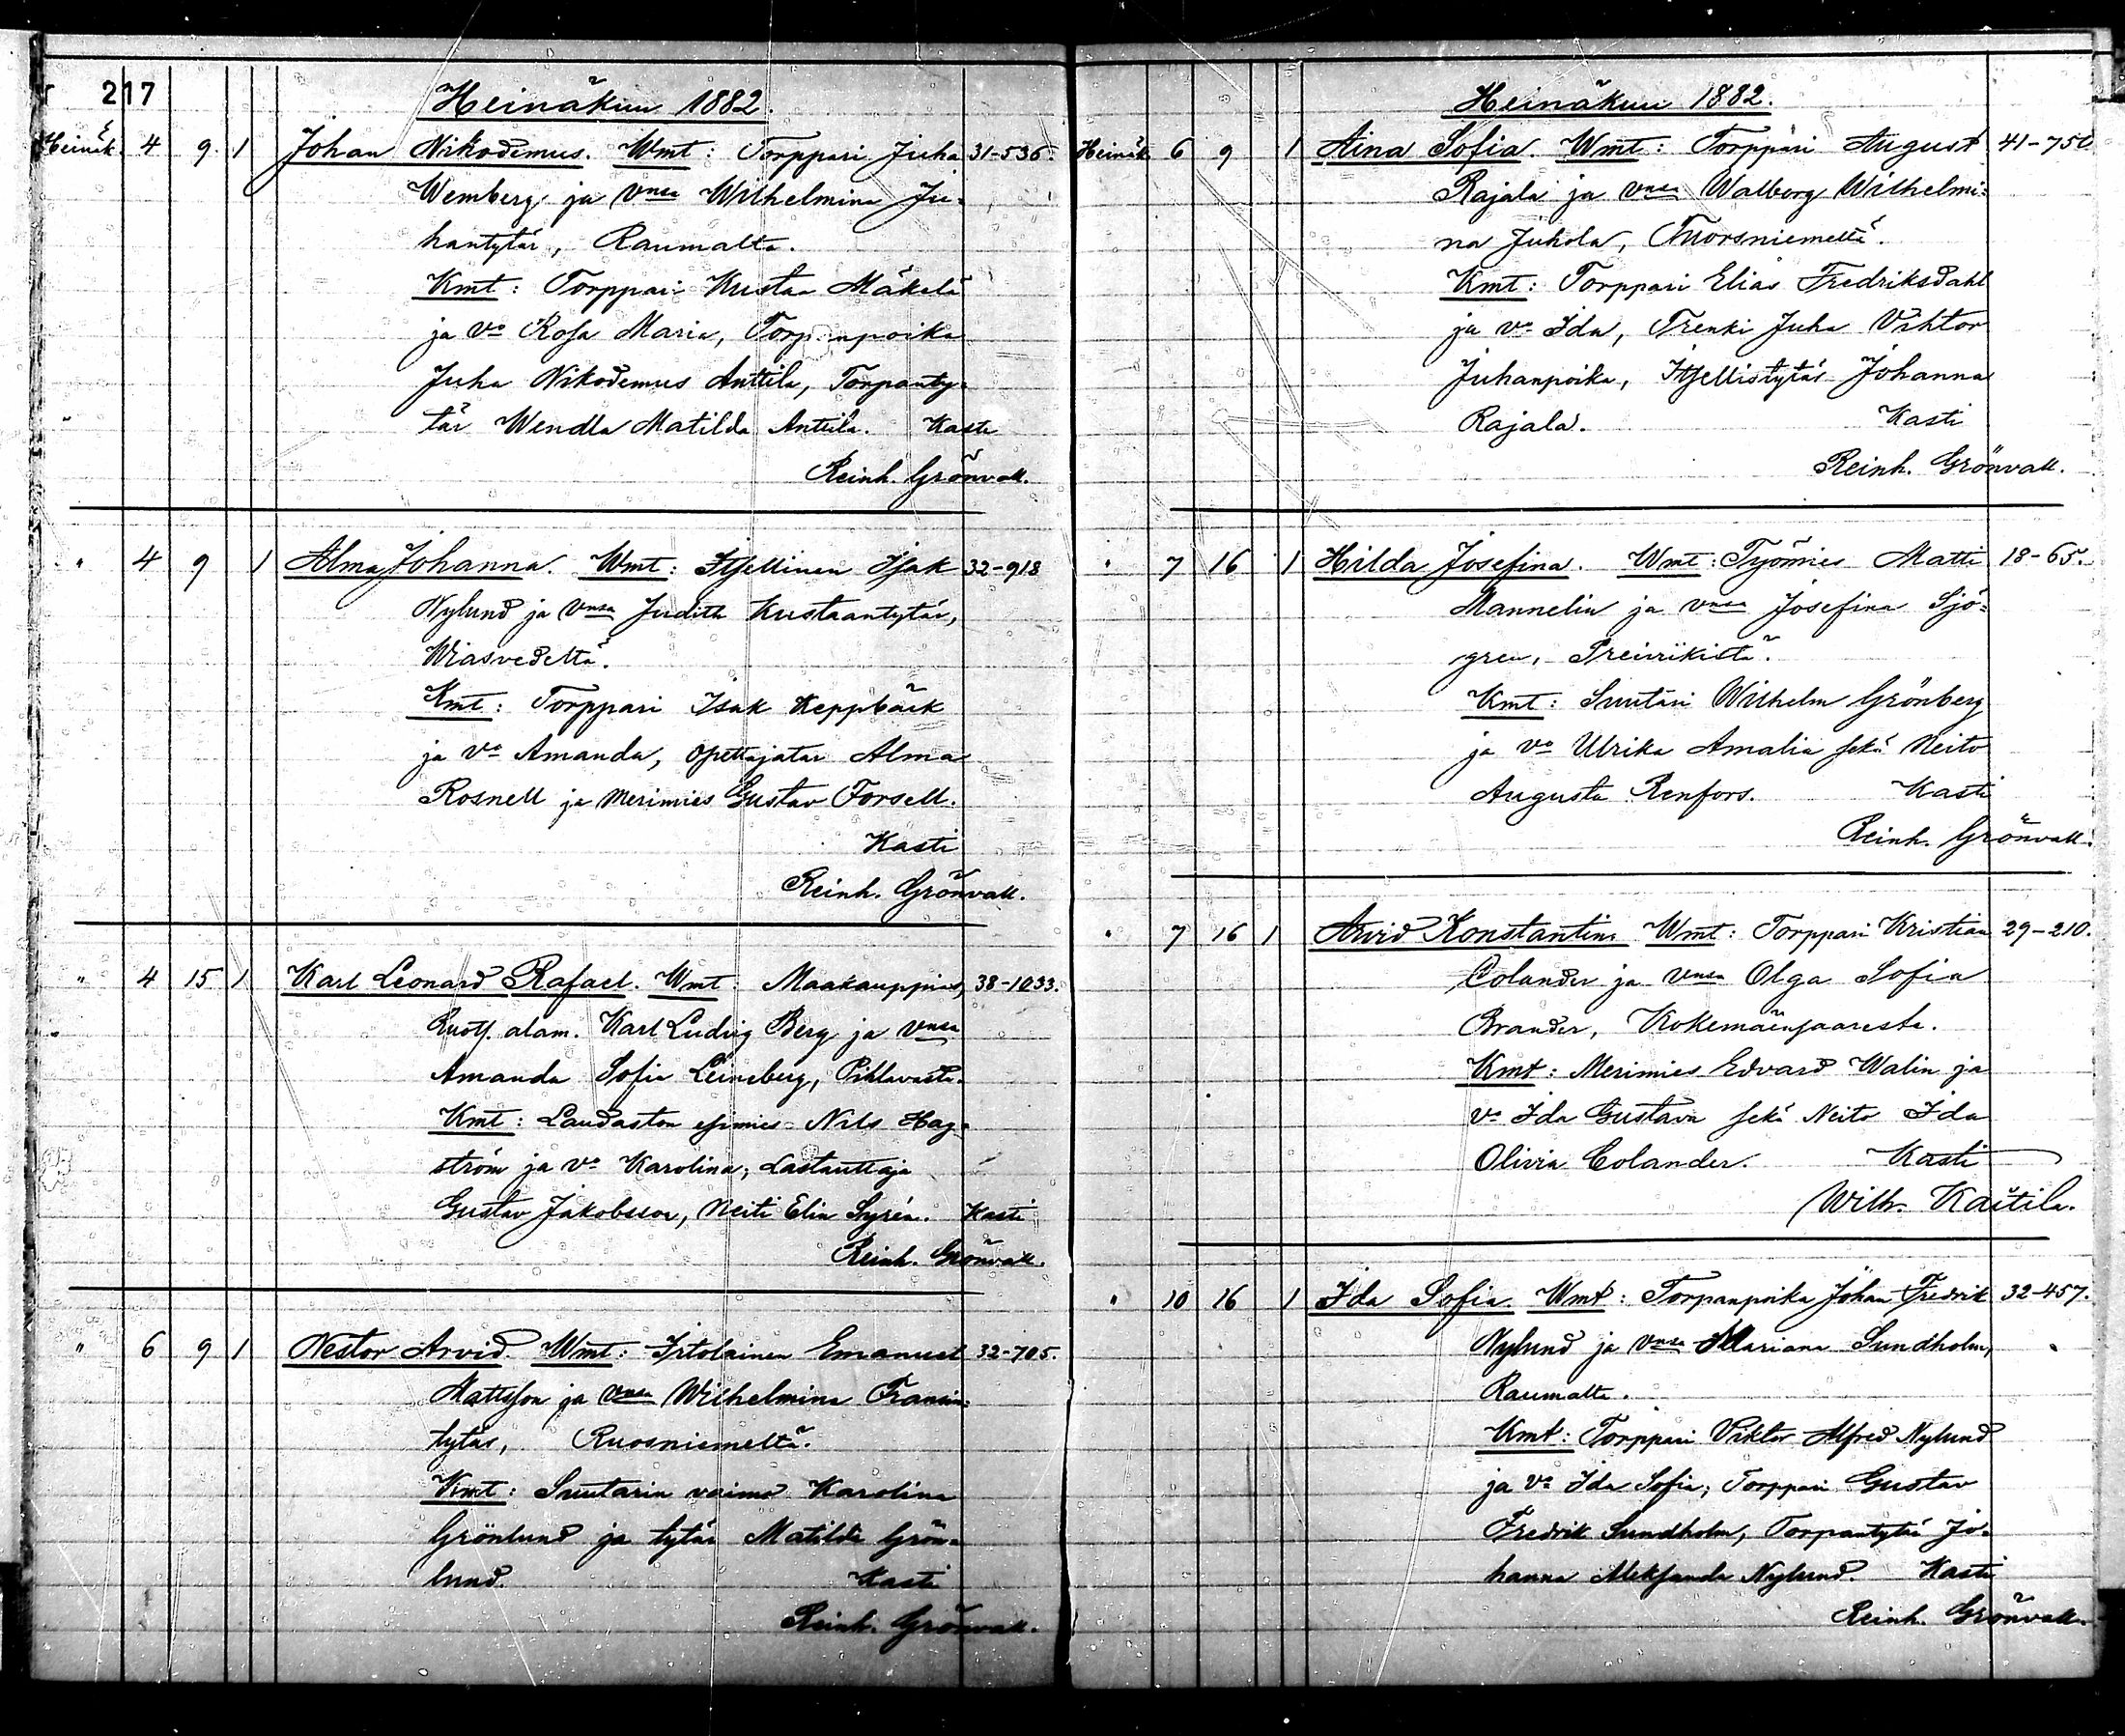 217
Heinäkuu 1882.
Heinäk. 4 9 1 Johan Nikodemus. Wmt: Torppari Juha 31-536.
Wemberg ja Vnsa Wilhelmina Ju-
hantytär, Raumalta.
Kmt: Torppari Kustaa Mäkelä
ja Vo Rosa Maria, Torpanpoika
Juha Nikodemus Anttila, Torpanty-
tär Wendla Matilda Anttila. Kasti
Reinh. Grönvall.
" 4 9 1 Alma Johanna. Wmt: Itsellinen Isak 32-918
Nylund ja Vnsa Judith Kustaantytär,
Wiasvedeltä.
Kmt: Torppari Isak Keppbäck
ja Vo Amanda, opettajatar Alma
Rosnell ja Merimies Gustav Forsell.
Kasti
Reinh. Grönvall.
" 4 15 1 Karl Leonard Rafael. Wmt: Maakauppias, 38-1033.
Ruots. alam. Karl Ludvig Berg ja Vnsa
Amanda Sofia Leineberg, Pihlavasta.
Kmt: Laudaston esimies Nils Hag-
ström ja Vo Karolina, Lastauttaja
Gustav Jakobsson, Neiti Elin Syrén. Kasti
Reinh. Grönvall.
" 6 9 1 Nestor Arvid. Wmt: Irtolainen Emanuel 32-705.
Mattsson ja Vnsa Wilhelmina Fransin-
tytär, Ruosniemeltä.
Kmt: Suutarin vaimo Karolina
Grönlund ja tytär Matilda Grön-
lund. Kasti
Reinh. Grönvall.
Heinäkuu 1882.
Heinäk. 6 9 1 Aina Sofia. Wmt: Torppari August 41-750
Rajala ja Vnsa Walborg Wilhelmi-
na Juhola, Tuorsniemeltä.
Kmt: Torppari Elias Fredriksdahl
ja Vo Ida, Trenki Juha Vihtor
Juhanpoika, Itsellistytär Johanna
Rajala. Kasti
Reinh. Grönvall.
" 7 16 1 Hilda Josefina. Wmt: Työmies Matti 18-65.
Mannelin ja Vnsa Josefina Sjö-
gren, Preiviikistä.
Kmt: Suutari Wilhelm Grönberg
ja Vo Ulrika Amalia sekä Neito
Augusta Renfors. Kasti
Reinh. Grönvall.
" 7 16 1 Arvid Konstantin. Wmt: Torppari Kristian 29-210.
Colander ja Vnsa Olga Sofia
Brander, Kokemäensaaresta.
Kmt: Merimies Edvard Walin ja
Vo Ida Gustava sekä Neito Ida
Olivia Colander. Kasti
Wilh. Kaitila.
" 10 16 1 Ida Sofia. Wmt: Torpanpoika Johan Fredrik 32-457.
Nylund ja Vnsa Mariana Sundholm,
Raumalta.
Kmt: Torppari Viktor Alfred Nylund
ja Vo Ida Sofia, Torppari Gustav
Fredrik Sundholm, Torpantytär Jo-
hanna Aleksanda Nylund. Kasti
Reinh. Grönvall.